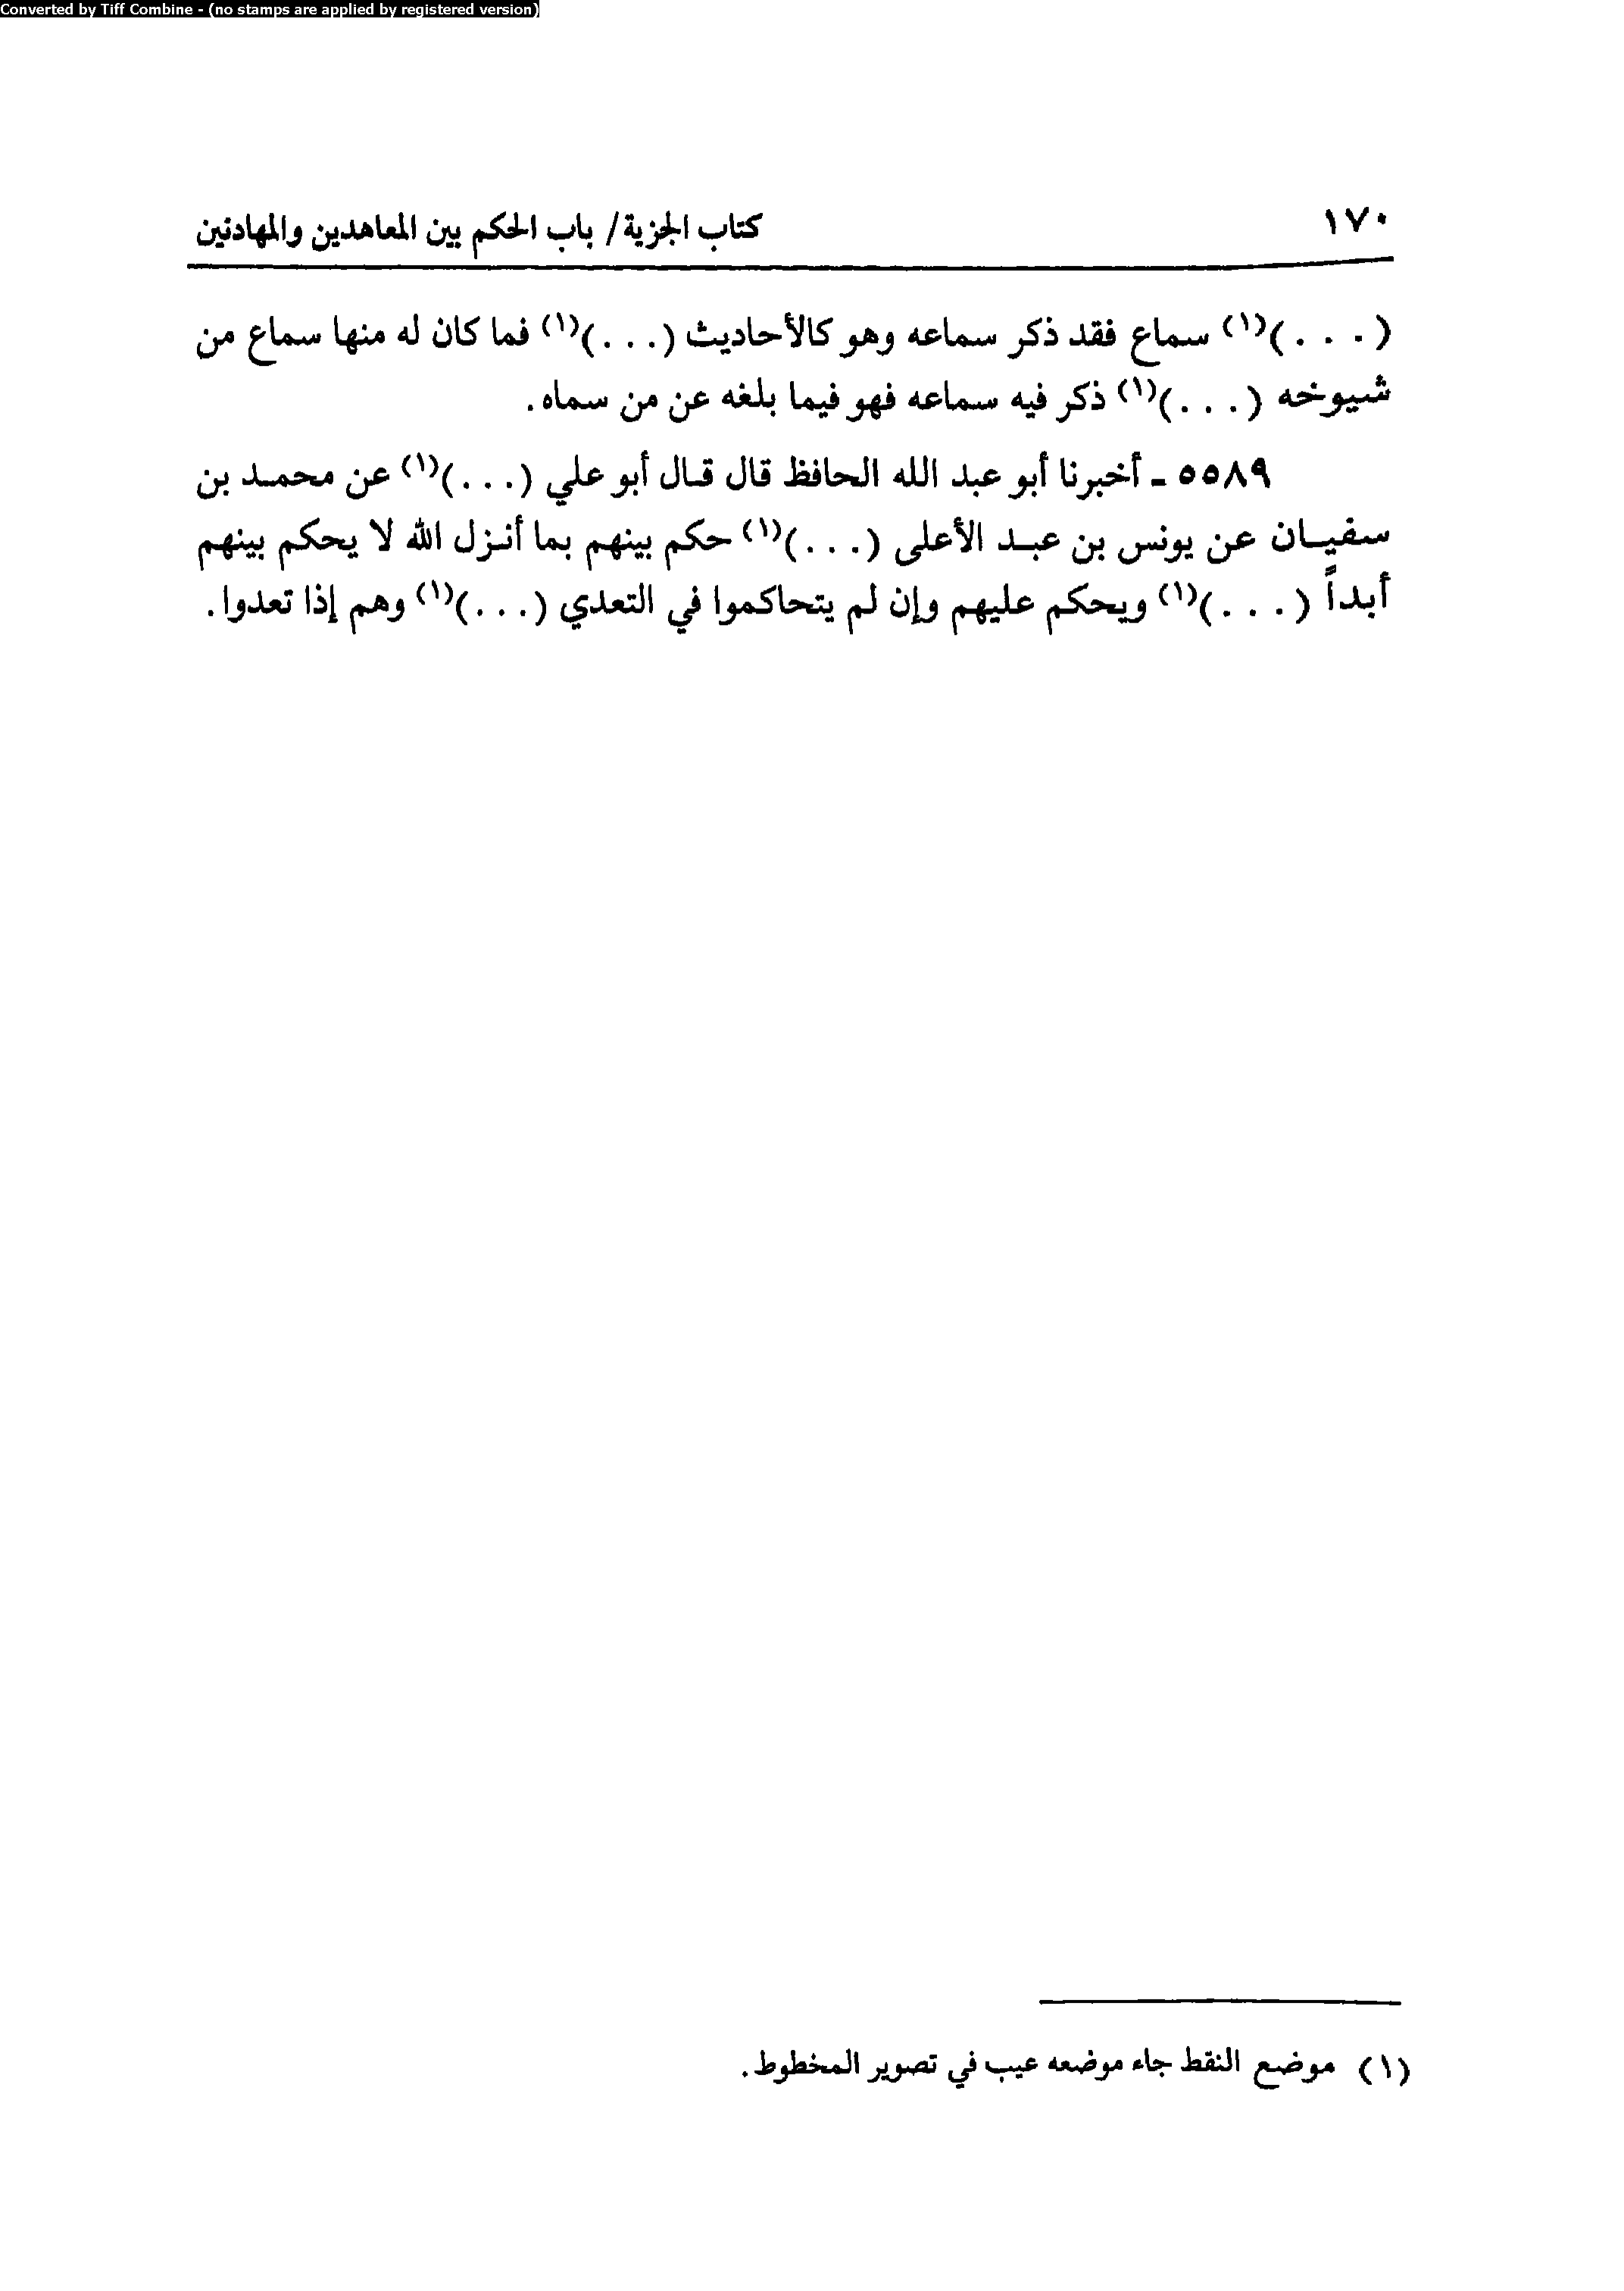 Converted by Tiff Combine - (no stamps are applied by registered version)
١٧٠ كتاب الجزية/ باب الحكم بين المعاهدين والمهادنين
(. . .)(١) سماع فقد ذكر سماعه وهو كالأحاديث (. . .)(١) فما كان له منها سماع من
شيوخه (. . .)(١) ذكر فيه سماعه فهو فيما بلغه عن من سماه.
٥٥٨٩ - أخبرنا أبو عبد الله الحافظ قال قال أبو علي (. . .)(١) عن محمد بن
سفيان عن يونس بن عبد الأعلى (. . .)(١) حكم بينهم بما أنزل الله لا يحكم بينهم
أبداً (. . .)(١) ويحكم عليهم وإن لم يتحاكموا في التعدي (. . .)(١) وهم إذا تعدوا.
(١) موضع النقط جاء موضعه عيب في تصوير المخطوط.